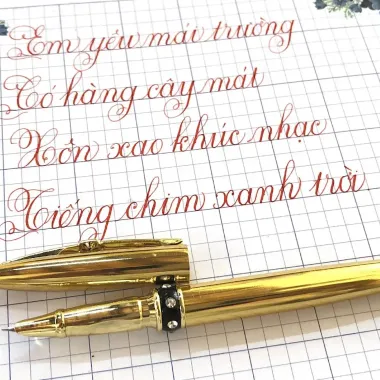 Em yêu mái trường
Có hàng cây mát
Xôn xao khúc nhạc
Tiếng chim xanh trời